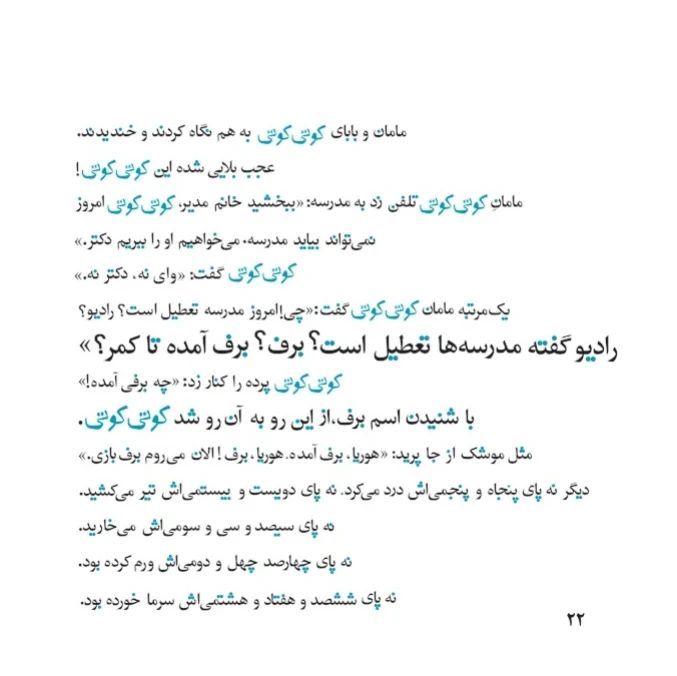 مامان و بابای کوتی‌کوتی به هم نگاه کردند و خندیدند.
عجب بلایی شده این کوتی‌کوتی!
مامانِ کوتی‌کوتی تلفن زد به مدرسه: «ببخشید خانم مدیر، کوتی‌کوتی امروز
نمی‌تواند بیاید مدرسه. می‌خواهیم او را ببریم دکتر.»
کوتی‌کوتی گفت: «وای نه، دکتر نه.»
یک‌مرتبه مامان کوتی‌کوتی گفت: «چی! امروز مدرسه تعطیل است؟ رادیو؟
رادیو گفته مدرسه‌ها تعطیل است؟ برف؟ برف آمده تا کمر؟»
کوتی‌کوتی پرده را کنار زد: «چه برفی آمده!»
با شنیدن اسم برف، از این رو به آن رو شد کوتی‌کوتی.
مثل موشک از جا پرید: «هوریا، برف آمده. هوریا، برف! الان می‌روم برف‌بازی.»
دیگر نه پای پنجاه و پنجمی‌اش درد می‌کرد. نه پای دویست و بیستمی‌اش تیر می‌کشید.
نه پای سیصد و سی و سومی‌اش می‌خارید.
نه پای چهارصد چهل و دومی‌اش ورم کرده بود.
نه پای ششصد و هفتاد و هشتمی‌اش سرما خورده بود.
۲۲